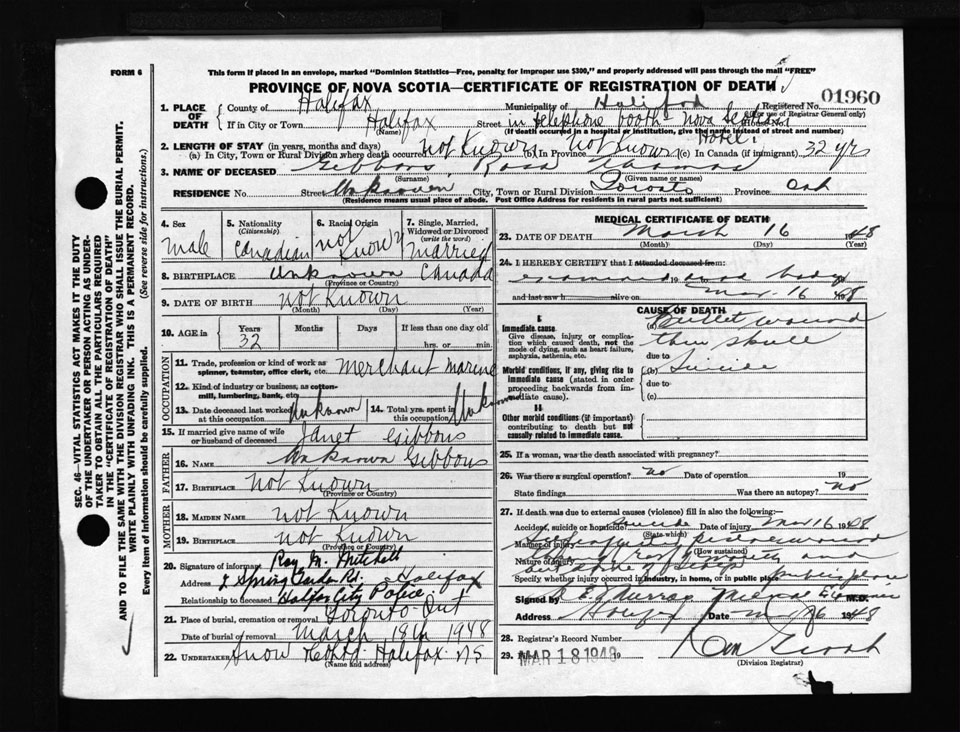 FORM 6
This form if placed in an envelope, marked "Dominion Statistics—Free, penalty for improper use $300," and properly addressed will pass through the mail "FREE"
PROVINCE OF NOVA SCOTIA—CERTIFICATE OF REGISTRATION OF DEATH
1. PLACE OF DEATH
County of Halifax Municipality of Registered No. 01960
(For use of Registrar General only)
If in City or Town Halifax Street in telephone booth Nova Scotian Hotel
(Name) (If death occurred in a hospital or institution, give the name instead of street and number)
2. LENGTH OF STAY (in years, months and days)
(a) In City, Town or Rural Division where death occurred not Known (b) In Province not Known (c) In Canada (if immigrant) 32 yrs
3. NAME OF DECEASED Gibbons, Ross Thomas
(Surname) (Given name or names)
RESIDENCE No. Street Unknown City, Town or Rural Division Toronto Province Ont
(Residence means usual place of abode. Post Office Address for residents in rural parts not sufficient)
4. Sex male
5. Nationality (Citizenship) Canadian
6. Racial Origin not Known
7. Single, Married, Widowed or Divorced (write the word) married
8. BIRTHPLACE Unknown Canada
(Province or Country)
9. DATE OF BIRTH not Known
(Month) (Day) (Year)
10. AGE in Years 32 Months Days If less than one day old hrs. or min.
OCCUPATION
11. Trade, profession or kind of work as spinner, teamster, office clerk, etc. Merchant marine
12. Kind of industry or business, as cotton-mill, lumbering, bank, etc.
13. Date deceased last worked at this occupation Unknown
14. Total yrs. spent in this occupation Unknown
15. If married give name of wife or husband of deceased Janet Gibbons
FATHER
16. NAME Unknown Gibbons
17. BIRTHPLACE Not Known
(Province or Country)
MOTHER
18. MAIDEN NAME not Known
19. BIRTHPLACE not Known
(Province or Country)
20. Signature of informant Roy M. Mitchell
Address Spring Garden Rd. Halifax
Relationship to deceased Halifax City Police
21. Place of burial, cremation or removal Toronto Ont
Date of burial or removal March 18th 1948
22. UNDERTAKER Snow Halifax NS
(Name and address)
MEDICAL CERTIFICATE OF DEATH
23. DATE OF DEATH March 16 1948
(Month) (Day) (Year)
24. I HEREBY CERTIFY that I attended deceased from:
examined 19 dead body
and last saw h alive on Mar. 16 1948
CAUSE OF DEATH
I.
Immediate cause.
Give disease, injury or complication which caused death, not the mode of dying, such as heart failure, asphyxia, asthenia, etc.
(a) Bullet wound thru skull
due to
Morbid conditions, if any, giving rise to immediate cause (stated in order proceeding backwards from immediate cause).
(b) Suicide
due to
(c)
II.
Other morbid conditions (if important) contributing to death but not causally related to immediate cause.
25. If a woman, was the death associated with pregnancy?
26. Was there a surgical operation? no Date of operation 19
State findings Was there an autopsy? no
27. If death was due to external causes (violence) fill in also the following:—
Accident, suicide or homicide? Suicide Date of injury Mar 16 1948
(State which)
Manner of injury
(How sustained)
Nature of injury
Specify whether injury occurred in industry, in home, or in public place public place
Signed by Murray Medical Examiner M.D.
Address Date 16 1948
28. Registrar's Record Number
29. MAR 18 1948 19
(Division Registrar)
SEC. 46—VITAL STATISTICS ACT MAKES IT THE DUTY
OF THE UNDERTAKER OR PERSON ACTING AS UNDER-
TAKER TO OBTAIN ALL THE PARTICULARS REQUIRED
IN THE "CERTIFICATE OF REGISTRATION OF DEATH"
AND TO FILE THE SAME WITH THE DIVISION REGISTRAR WHO SHALL ISSUE THE BURIAL PERMIT.
WRITE PLAINLY WITH UNFADING INK. THIS IS A PERMANENT RECORD.
Every item of information should be carefully supplied. (See reverse side for instructions.)